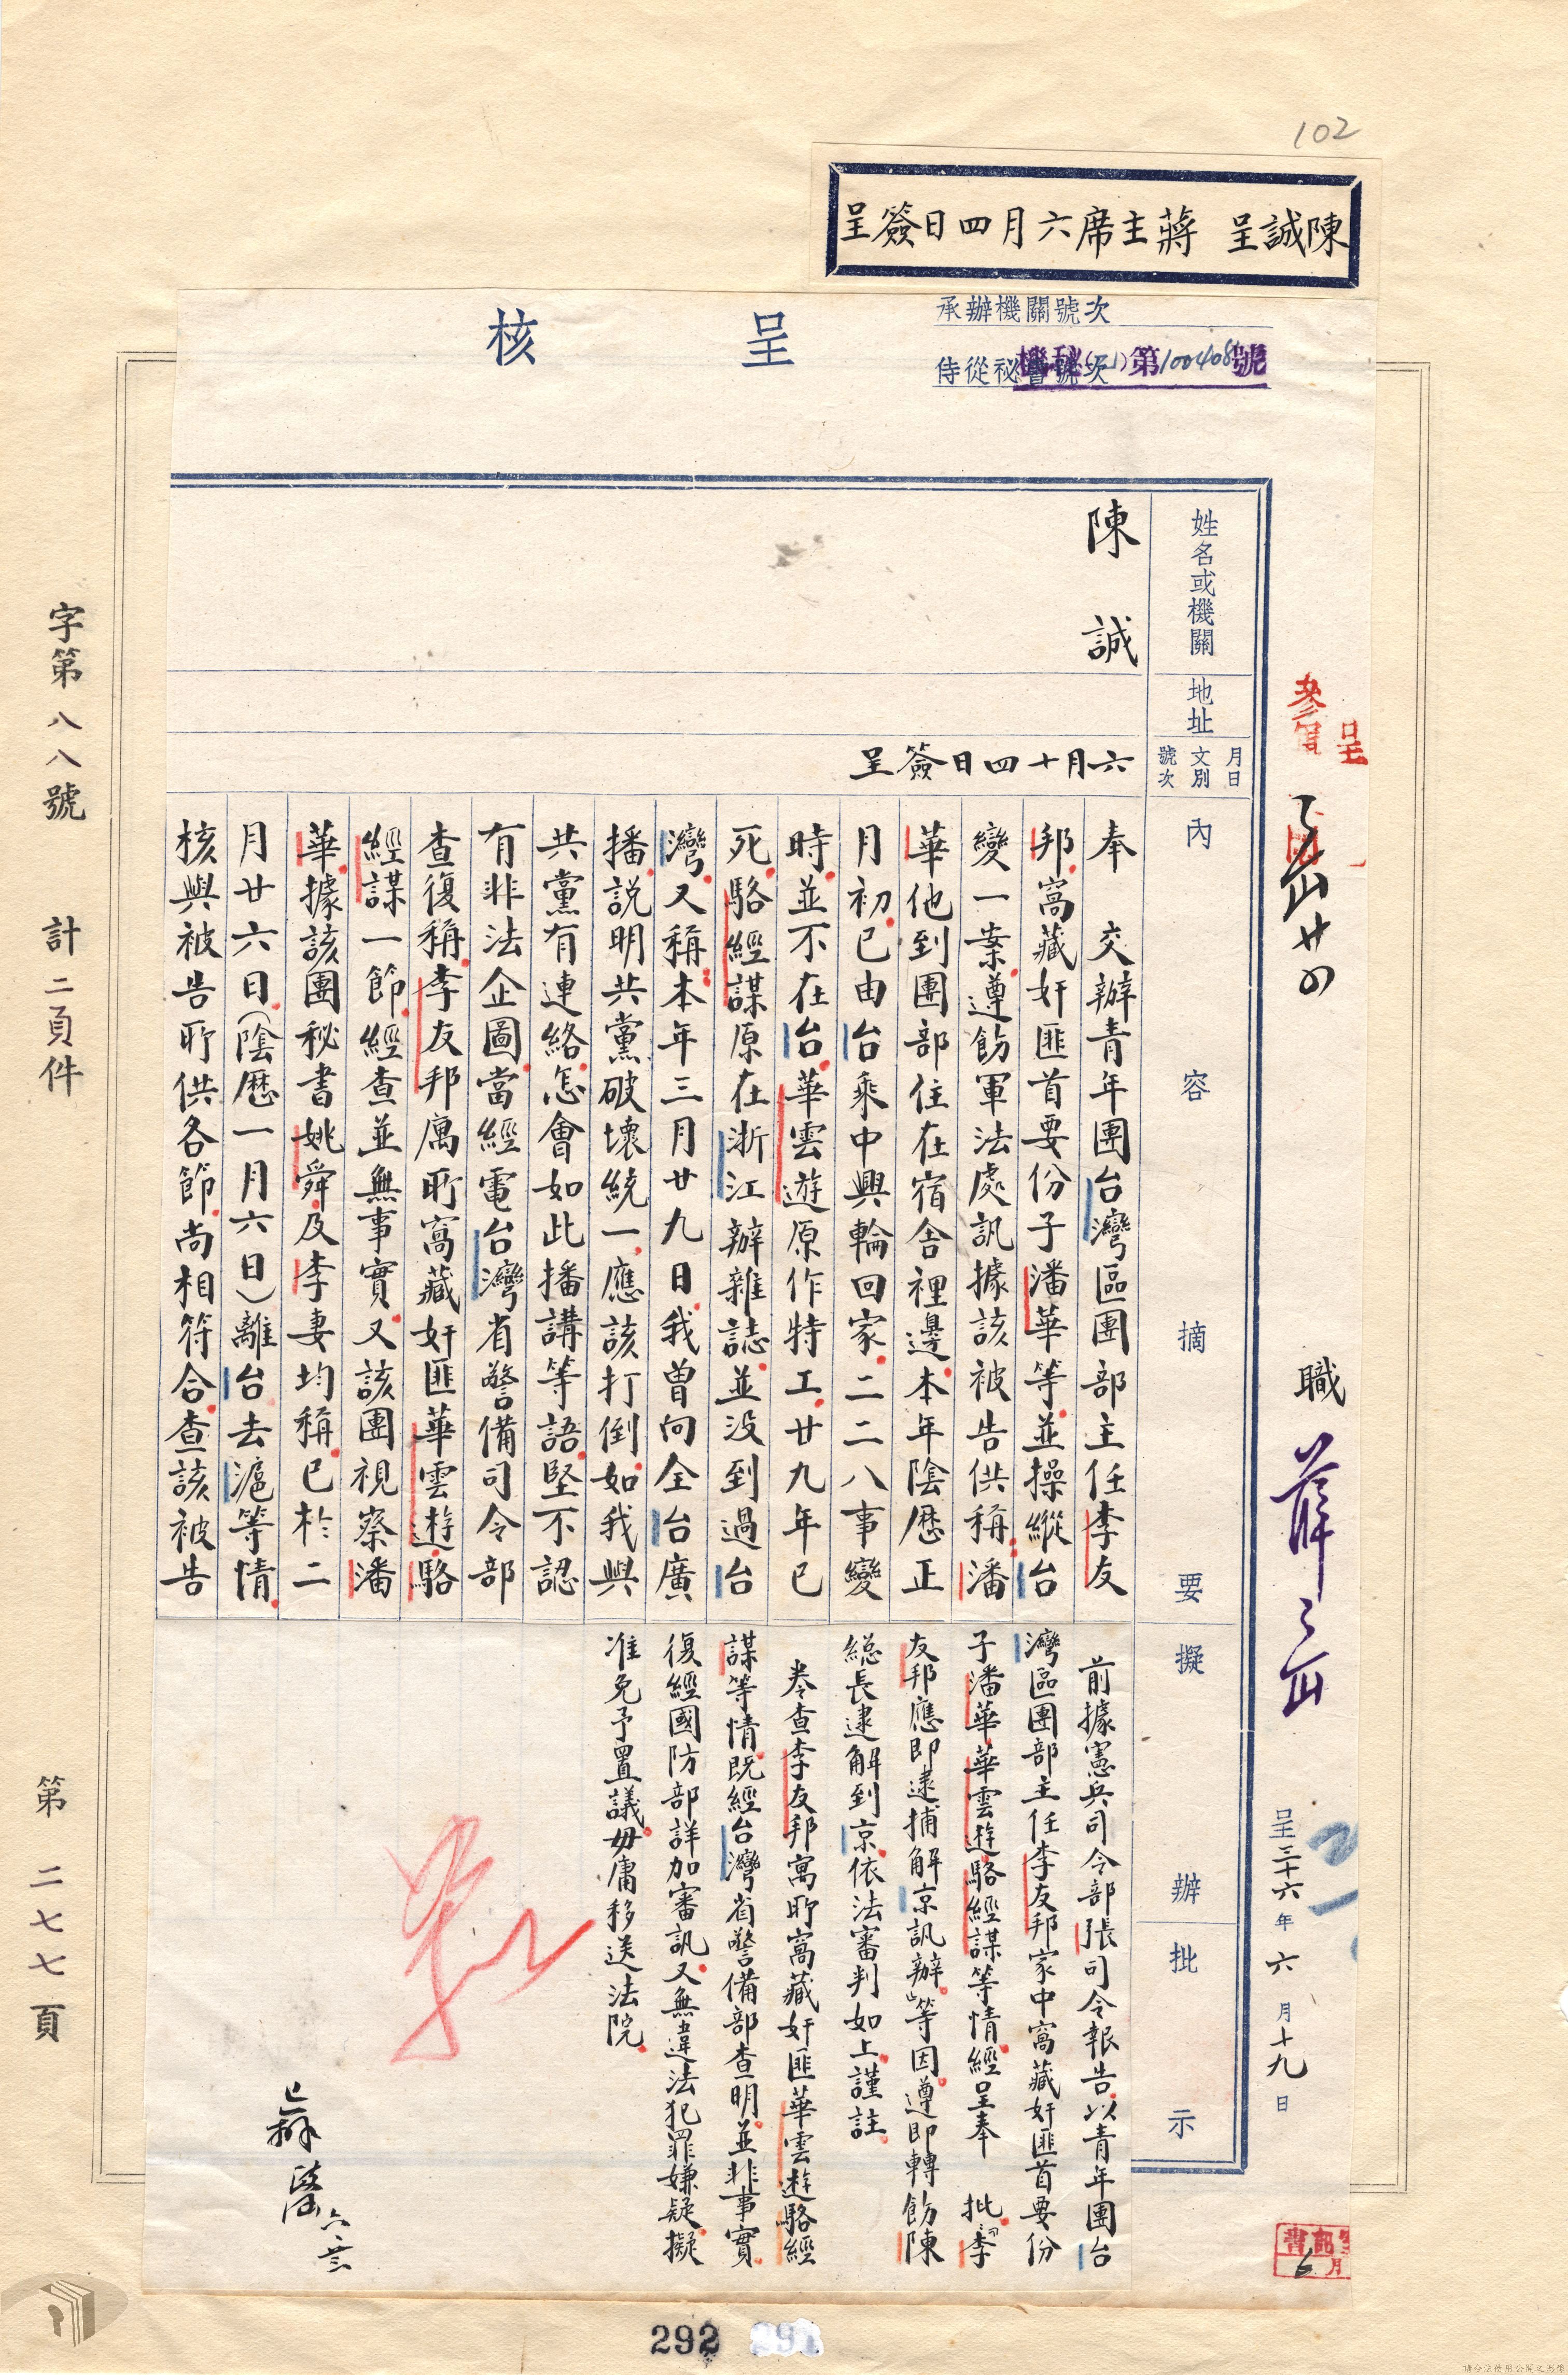 102
陳誠呈 蔣主席六月四日簽呈
承辦機關號次
侍從祕書號次
機秘( )第100408號
呈核
呈
職 薛
呈三十六年六月十九日
姓名或機關
地址
月日
文別
號次
內容摘要
擬辦
批示
陳誠
六月十四日簽呈
奉 交辦青年團台灣區團部主任李友
邦窩藏奸匪首要份子潘華等並操縱台
變一案遵飭軍法處訊據該被告供稱潘
華他到團部住在宿舍裡邊本年陰歷正
月初已由台乘中興輪回家二二八事變
時並不在台華雲遊原作特工廿九年已
死駱經謀原在浙江辦雜誌並没到過台
灣又稱本年三月廿九日我曾向全台廣
播說明共黨破壞統一應該打倒如我與
共黨有連絡怎會如此播講等語堅不認
有非法企圖當經電台灣省警備司令部
查復稱李友邦寓所窩藏奸匪華雲遊駱
經謀一節經查並無事實又該團視察潘
華據該團秘書姚舜及李妻均稱已於二
月廿六日(陰歷一月六日)離台去滬等情
核與被告所供各節尚相符合查該被告
前據憲兵司令部張司令報告以青年團台
灣區團部主任李友邦家中窩藏奸匪首要份
子潘華華雲遊駱經謀等情經呈奉 批「李
友邦應即逮捕解京訊辦」等因遵即轉飭陳
總長逮解到京依法審判如上謹註
卷查李友邦寓所窩藏奸匪華雲遊駱經
謀等情既經台灣省警備部查明並非事實
復經國防部詳加審訊又無違法犯罪嫌疑擬
准免予置議毋庸移送法院
字第八八號 計二頁件 第二七七頁
292
請合法使用公開之影像